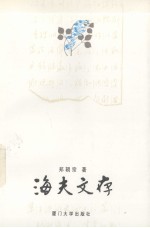 郑朝宗 著
海夫文存
厦门大学出版社